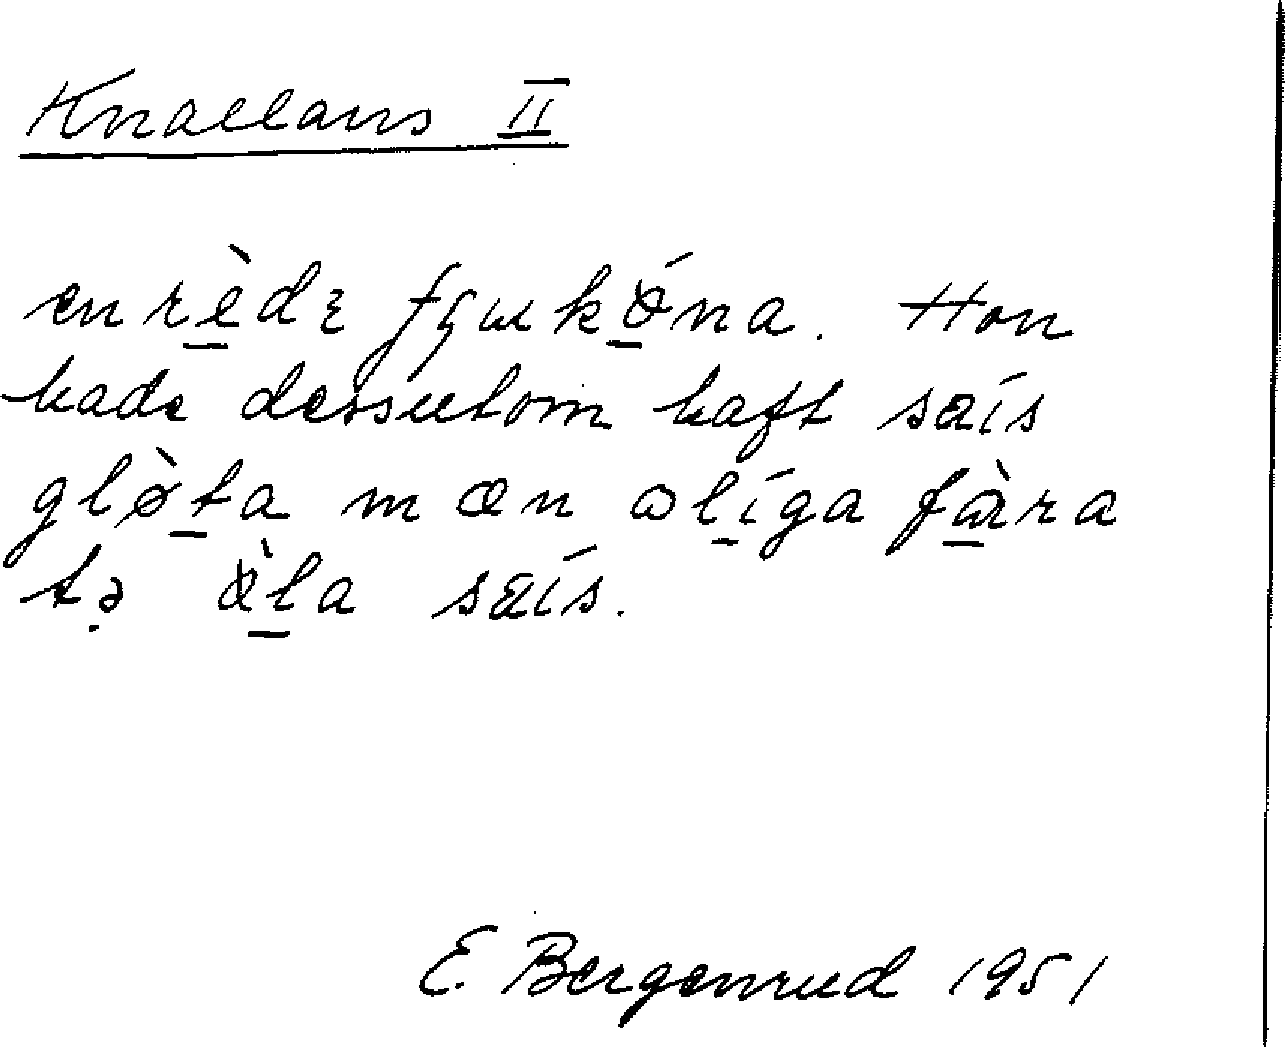 Knallans II
en rède fqukǿna. Hon
hade dessutom haft sæís
glø̀ta m æn ɷlíga fàra
tə ø̀la sæís.
E. Bergenrud 1951